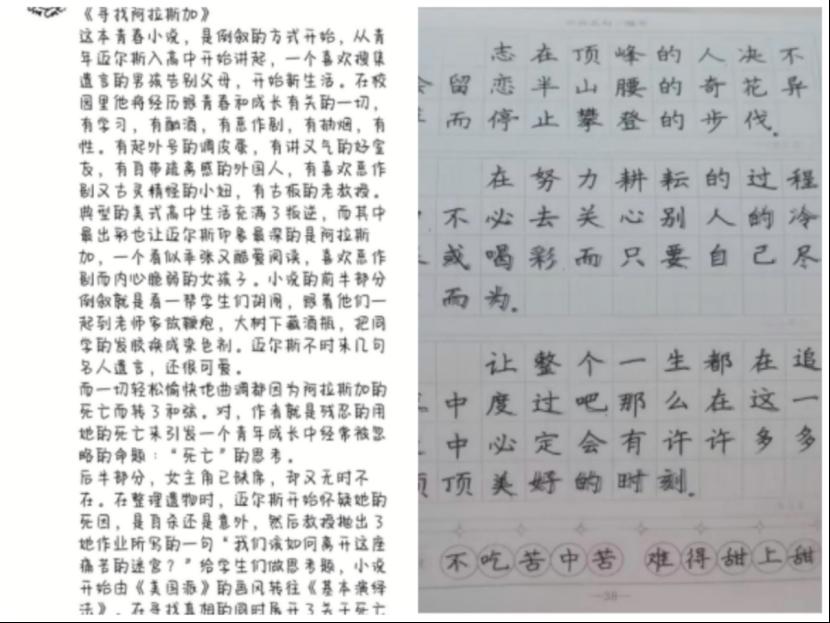 《寻找阿拉斯加》
这本青春小说，是倒叙的方式开始，从青
年迈尔斯入高中开始讲起，一个喜欢搜集
遗言的男孩告别父母，开始新生活。在校
园里他将经历跟青春和成长有关的一切，
有学习，有酗酒，有恶作剧，有抽烟，有
性。有起外号的调皮蛋，有讲义气的好室
友，有自带疏离感的外国人，有喜欢恶作
剧又古灵精怪的小妞，有古板的老教授。
典型的美式高中生活充满了叛逆，而其中
最出彩也让迈尔斯印象最深的是阿拉斯
加，一个看似乖张又酷爱阅读，喜欢恶作
剧而内心脆弱的女孩子。小说的前半部分
倒叙就是看一帮学生们胡闹，跟着他们一
起到老师家放鞭炮，大树下藏酒瓶，把同
学的发胶换成染色剂。迈尔斯不时来几句
名人遗言，还很可爱。
而一切轻松愉快地曲调都因为阿拉斯加的
死亡而转了和弦。对，作者就是残忍的用
她的死亡来引发一个青年成长中经常被忽
略的命题：“死亡”的思考。
后半部分，女主角已缺席，却又无时不
在。在整理遗物时，迈尔斯开始怀疑她的
死因，是自杀还是意外，然后教授抽出了
她作业所写的一句“我们该如何离开这座
痛苦的迷宫？”给学生们做思考题，小说
开始由《美国派》的画风转往《基本演绎
法》，在寻找真相的同时展开了关于死亡
志在顶峰的人决不
留恋半山腰的奇花异
而停止攀登的步伐。
在努力耕耘的过程
不必去关心别人的冷
或喝彩而只要自己尽
而为。
让整个一生都在追
中度过吧那么在这一
中必定会有许许多多
顶顶美好的时刻。
不吃苦中苦 难得甜上甜
—38—